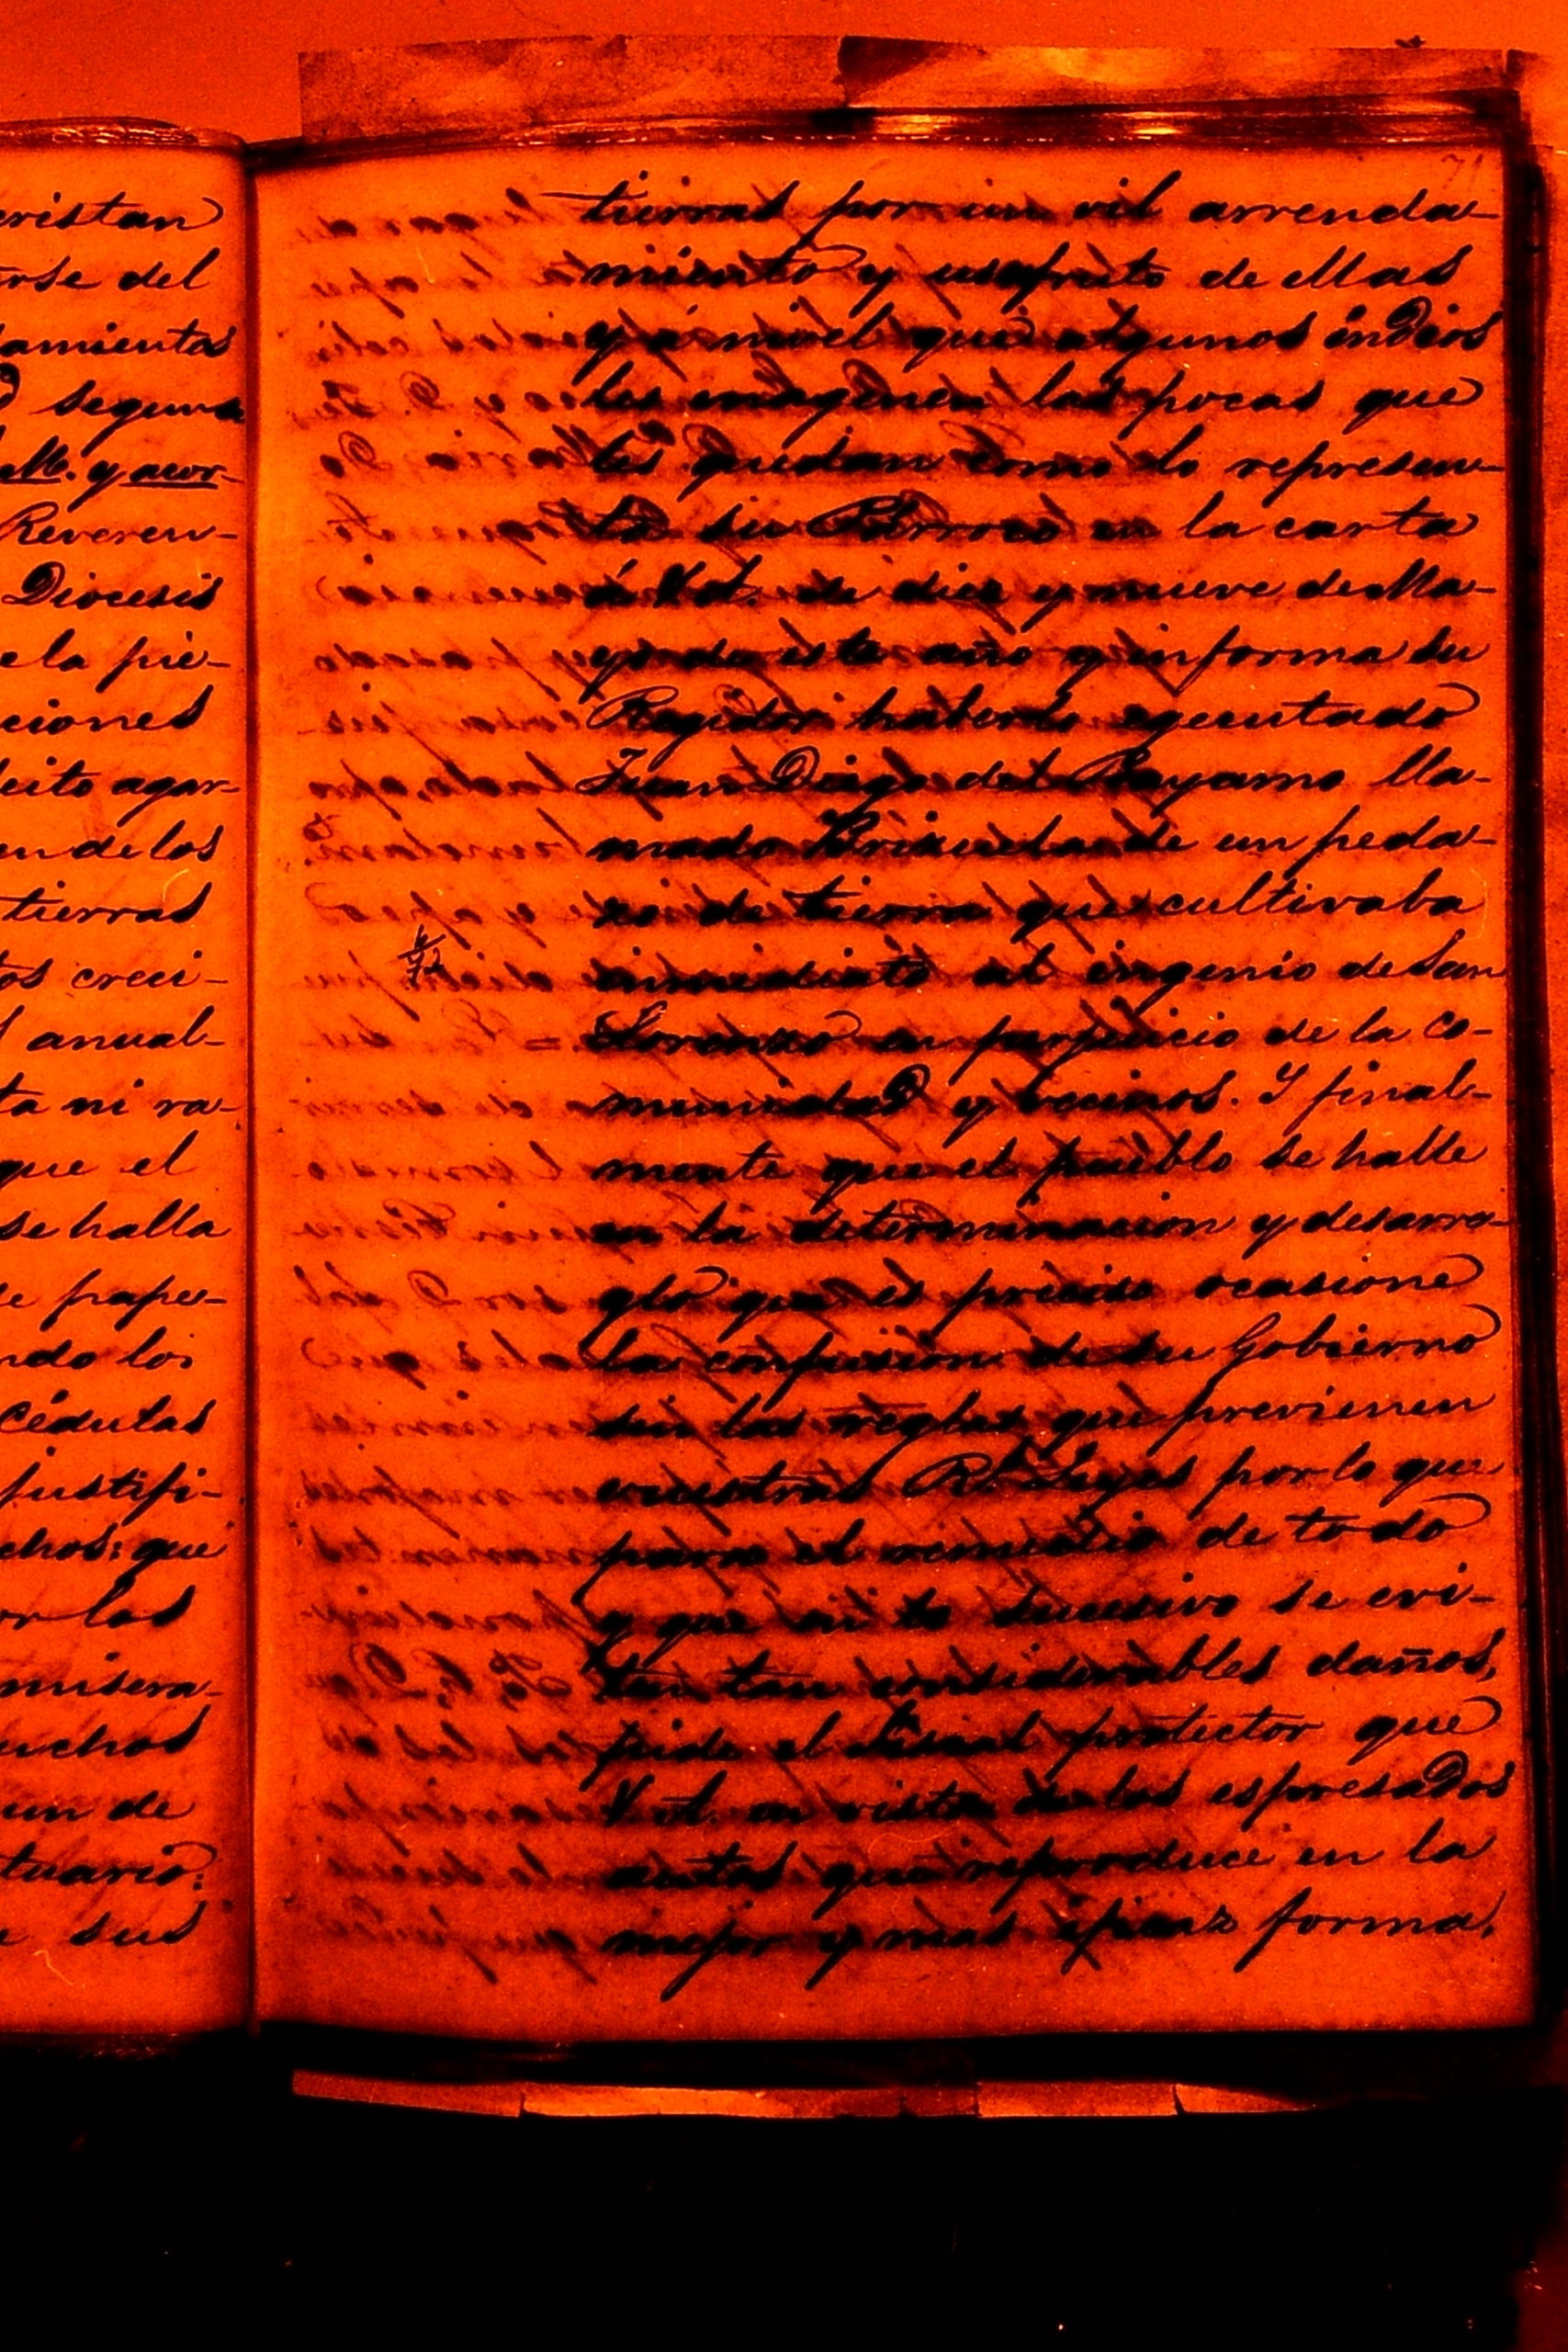 cristan
arse del
amientos
d segura
M. y acor-
Reveren-
Diocesis
e la pie-
ciones
leito agar-
en de los
tierras
tos creci-
s anual-
ta ni ra-
que el
se halla
de pape-
ndo los
cédulas
justifi-
chos: que
or las
misera-
uchos
un de
tuario:
e sus
71
tierras por un vil arrenda-
miento y usofruto de ellas
y á nivel que algunos indios
les enagenen las pocas que
les quedan como lo represen-
ta su Párroco en la carta
á V.A. de diez y nueve de Ma-
yo de este año y informa su
Regidor haberlo egecutado
Juan Diego del Bayamo lla-
mado Brizuela de un peda-
zo de tierra que cultivaba
inmediato al ingenio de San
Lorenzo en perjuicio de la co-
munidad y vecinos. Y final-
mente que el pueblo se halle
en la determinacion y desarre-
glo que es preciso ocasione
la confusion de su Gobierno
sin las reglas que previenen
vuestras Rs. Leyes por lo que
para el remedio de todo
y que en lo sucesivo se evi-
ten tan considerables daños,
pide el fiscal protector que
V.A. en vista de los espresados
autos que reproduce en la
mejor y mas eficaz forma,